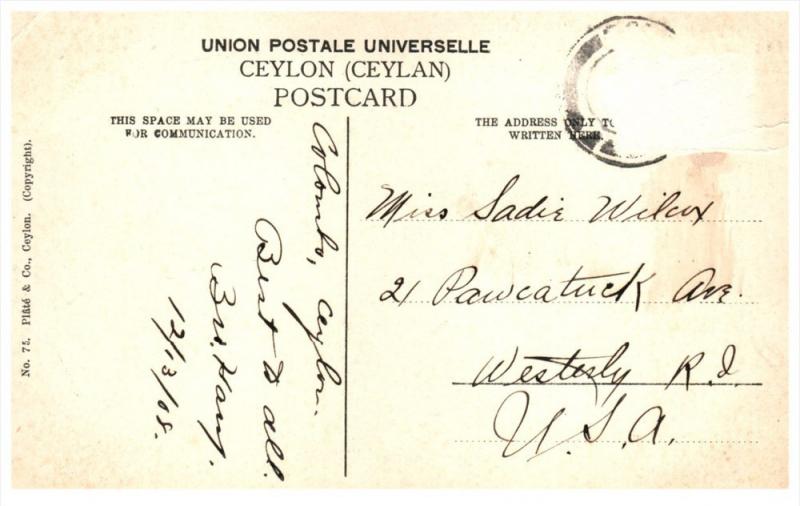 UNION POSTALE UNIVERSELLE
CEYLON (CEYLAN)
POSTCARD
THIS SPACE MAY BE USED
FOR COMMUNICATION.
THE ADDRESS ONLY TO
WRITTEN HERE.
No. 75. Plâté & Co., Ceylon. (Copyright).
Colombo, Ceylon.
Best to all.
Bro. Harry.
12/13/08.
Miss Sadie Wilcox
21 Pawcatuck Ave.
Westerly R.I.
U.S.A.